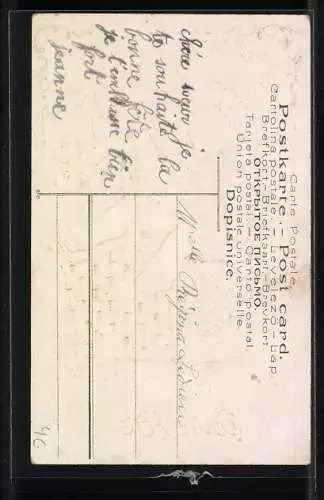 Carte Postale.
Postkarte. — Post card.
Cartolina postale. — Levelező-Lap.
Brefkort-Briefkaart-Brevkort.
ОТКРЫТОЕ ПИСЬМО.
Tarjeta postal. — Carta postal.
Union postale universelle.
Dopisnice.
chère sœur je
te souhaite la
bonne fête
je t'embrasse bien
fort
jeanne
Mlle Régina
4C